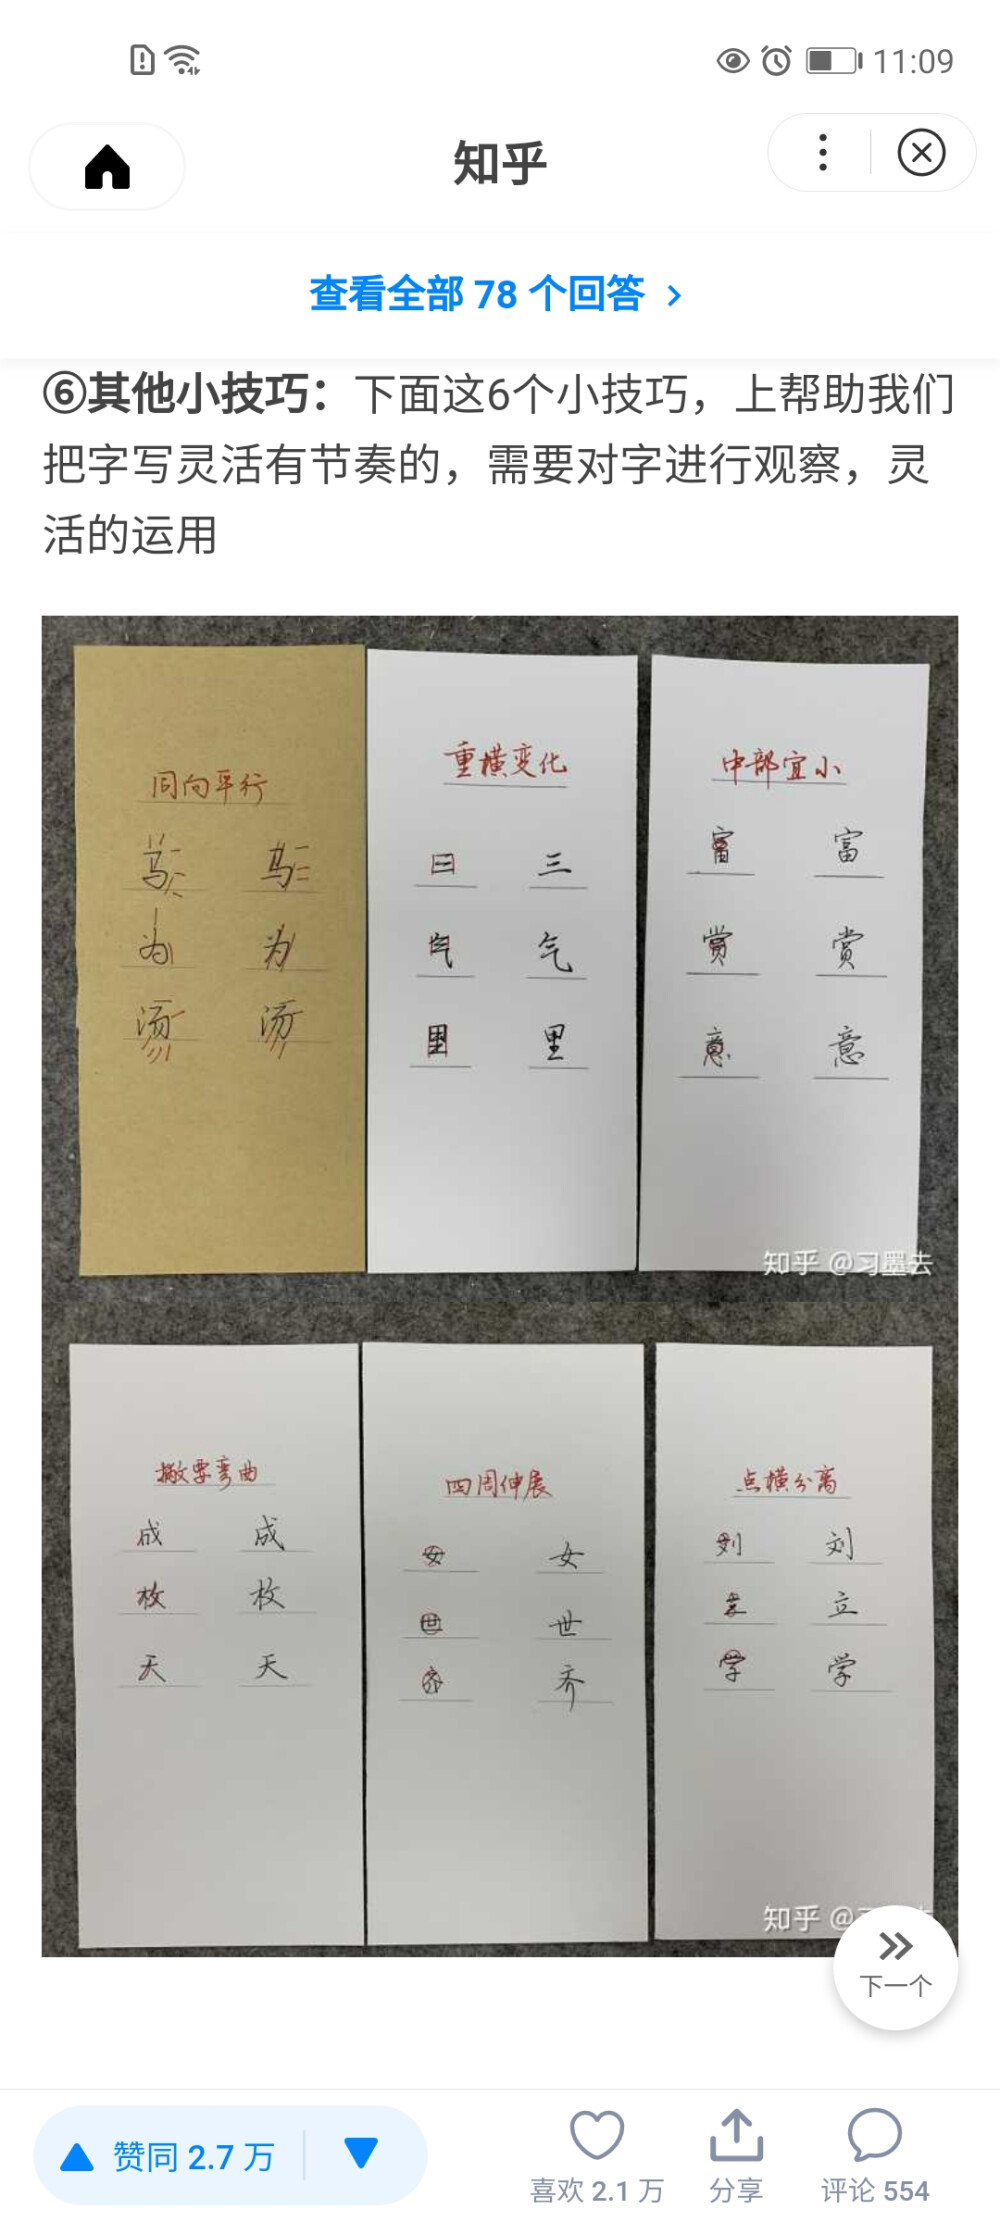 11:09
知乎
查看全部 78 个回答
⑥其他小技巧：下面这6个小技巧，上帮助我们
把字写灵活有节奏的，需要对字进行观察，灵
活的运用
同向平行
马 马
为 为
汤 汤
重横变化
曰 三
气 气
里 里
中部宜小
富 富
赏 赏
意 意
知乎 @习墨去
撇要弯曲
成 成
枚 枚
天 天
四周伸展
女 女
世 世
齐 齐
点横分离
刘 刘
立 立
学 学
知乎 @
下一个
赞同 2.7 万
喜欢 2.1 万
分享
评论 554